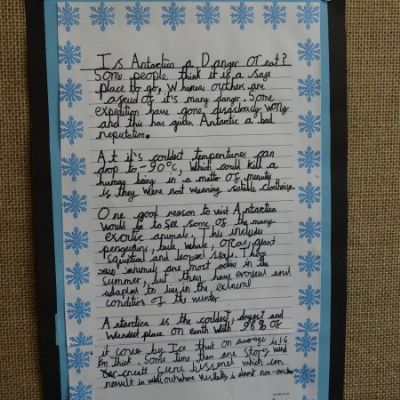 Is Antarctica a Danger or not?
Some people think it is a safe
place to go, Whereas outhers are
afraid of it's many danger. Some
expedition have gone disasterously wrong
and this has given Antarctic a bad
reputation.
At it's coldest tempenturer can
drop to -90°C, which could kill a
human being in a matter of minuits
is they were not wearing suitable clotheing.
One good reason to visit Antarctica
would be to see some of the many
exotic animals, This include
penguituns, bule whale, orcas, giant
squid and leopard seals.
animals are most active in the
summer, but they have evovleved and
adapted to live in the extreme
condition of the winter.
Antartica is the coldest, dryest and
Wiendest place on earth With 98% of
it cover by Ice that on average is 1.6
km thick. Some time there are Strong wind
can create which can
result in white out where visibility is almost